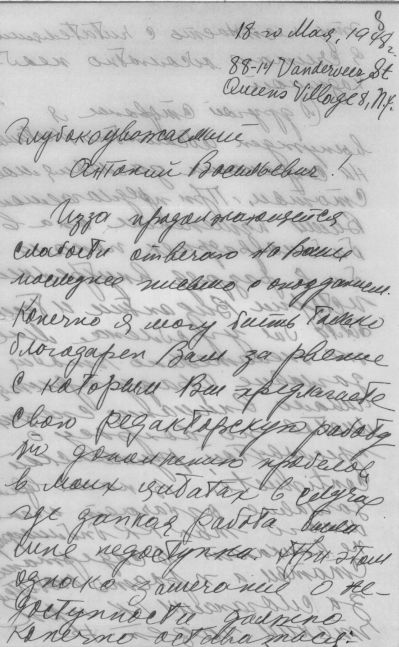 18-го Мая, 1948 г.
88-14 Vanderveer St
Queens Village 8, N.Y.
Глубокоуважаемый
Антоний Васильевич!
Изза продолжающейся
слабости отвечаю на Ваше
последнее письмо с опозданием.
Конечно я могу быть только
благодарен Вам за рвение
с которым Вы предлагаете
свою редакторскую работу
по дополнению пробелов
в моих цитатах в случае
где данная работа была
мне недоступна. При этом
однако замечание о не-
доступности должно
конечно оставаться: